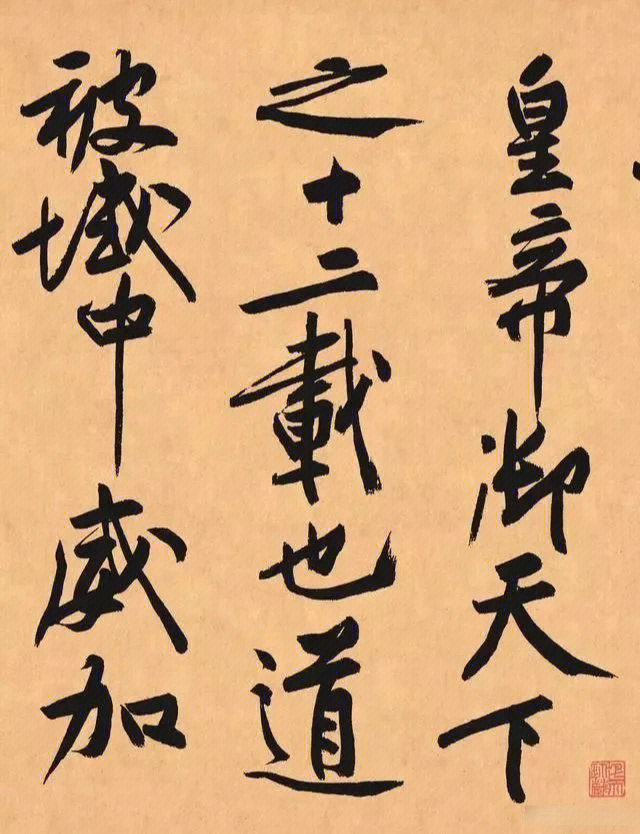 皇帝御天下
之十二載也道
被域中威加